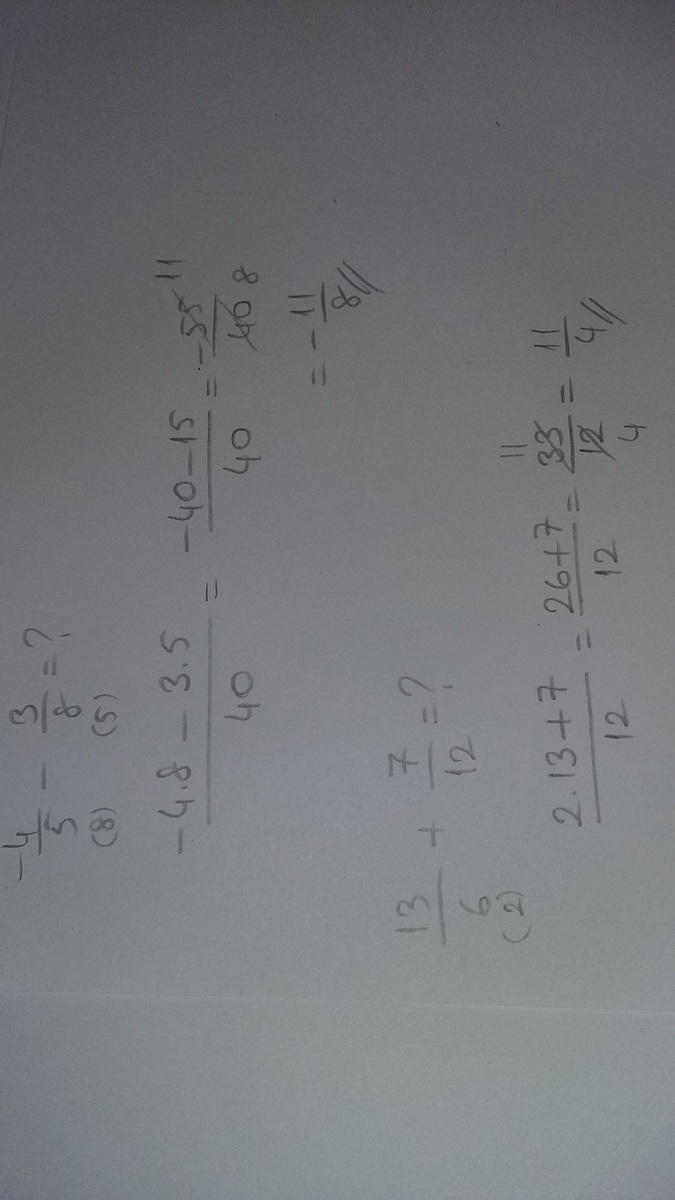 -4/5 - 3/8 = ?
(8) (5)
(-4.8 - 3.5)/40 = (-40-15)/40 = -55/40 11 8
= -11/8 //
13/6 + 7/12 = ?
(2)
(2.13+7)/12 = (26+7)/12 = 33/12 11 4 = 11/4 //